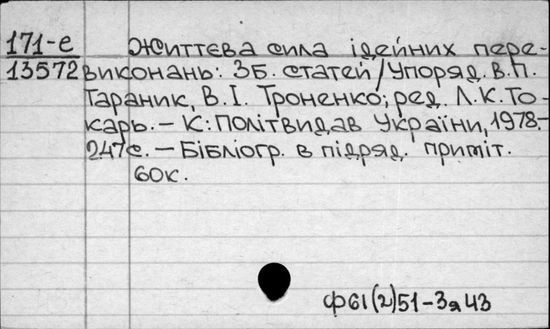 171-е Життєва сила ідейних пере-
13572 виконань: Зб. статей / Упоряд. В.П.
Тараник, В.І. Троненко; ред. Л.К. То-
карь. – К: Політвидав України, 1978.–
247с. – Бібліогр. в підряд. приміт.
60к.
Ф61(2)51-3я43